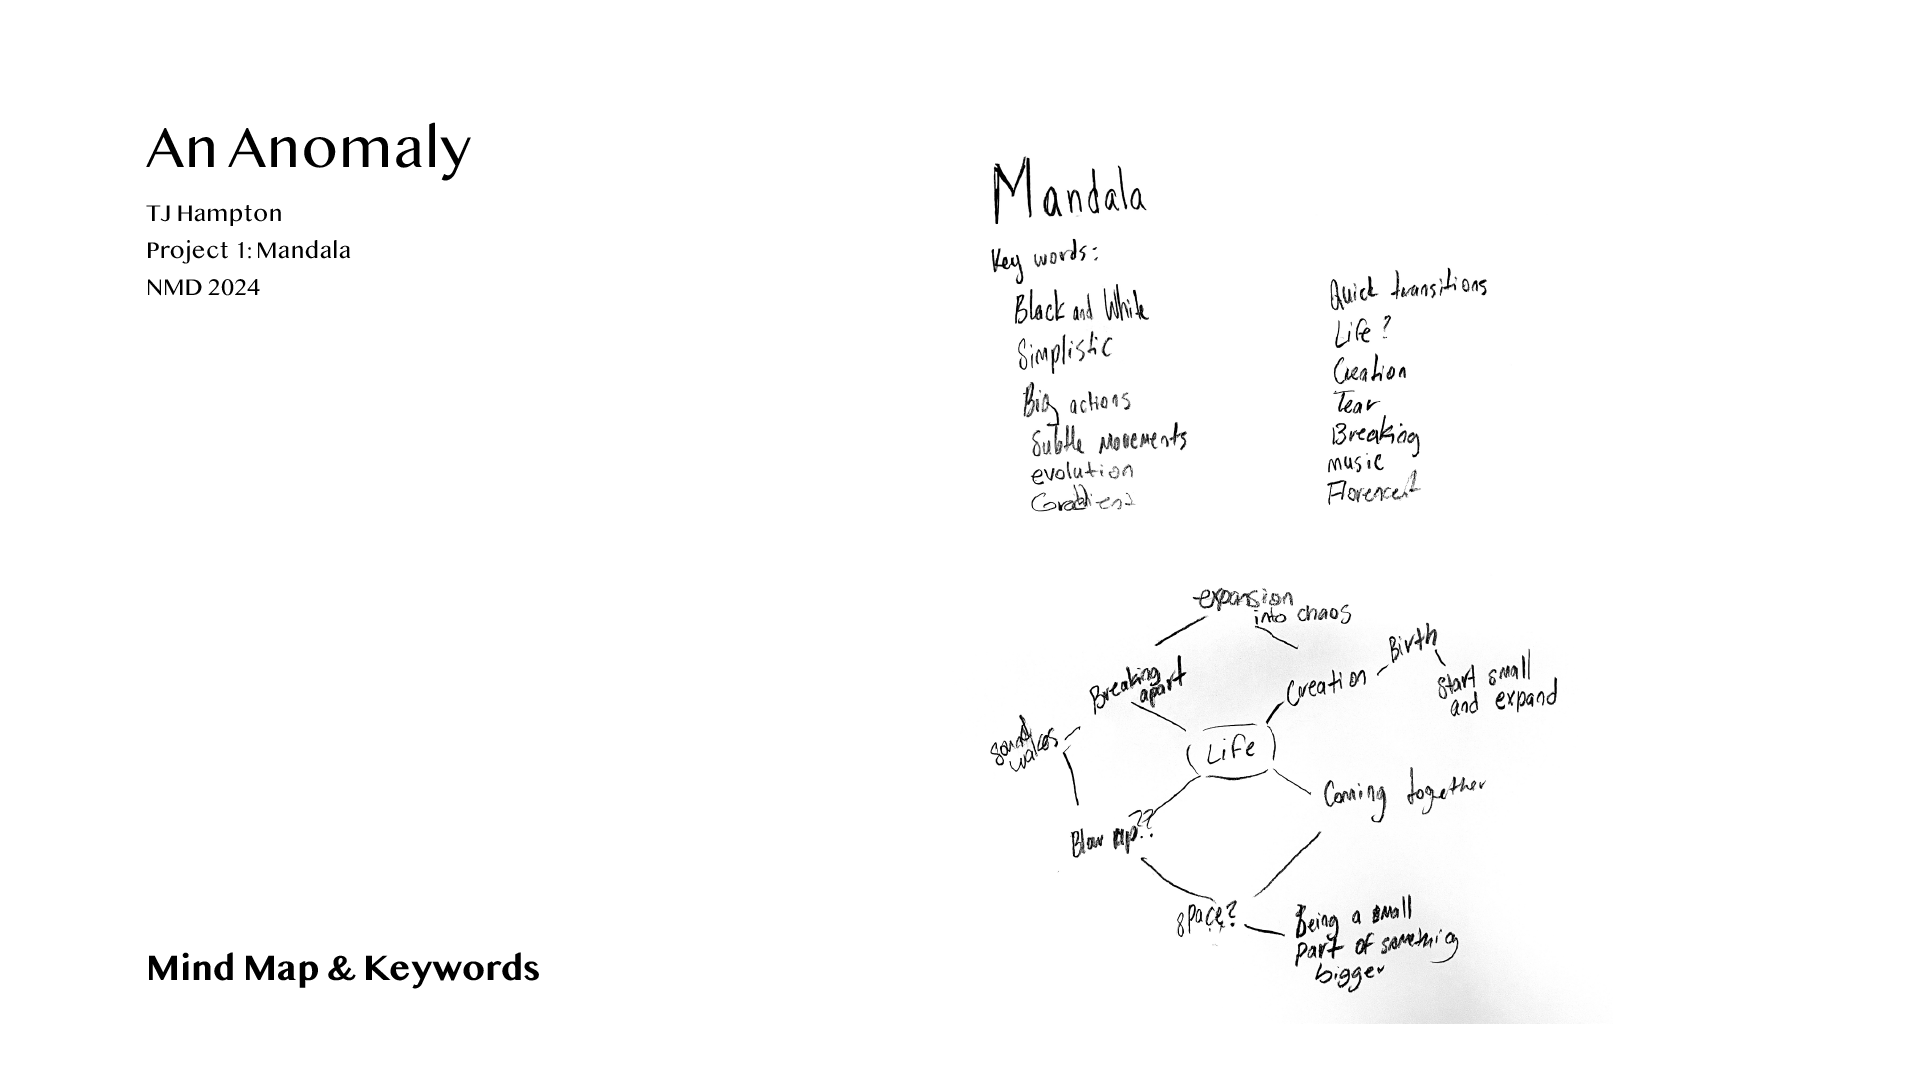 An Anomaly
TJ Hampton
Project 1: Mandala
NMD 2024
Mind Map & Keywords
Mandala
Key words:
Black and White
Simplistic
Big actions
Subtle Movements
evolution
Gradient
Quick transitions
Life?
Creation
Tear
Breaking
music
Florence
expansion
into chaos
Breaking
apart
Creation
Birth
Start small
and expand
Sound
Life
Coming together
Blow up??
Space?
Being a small
part of something
bigger